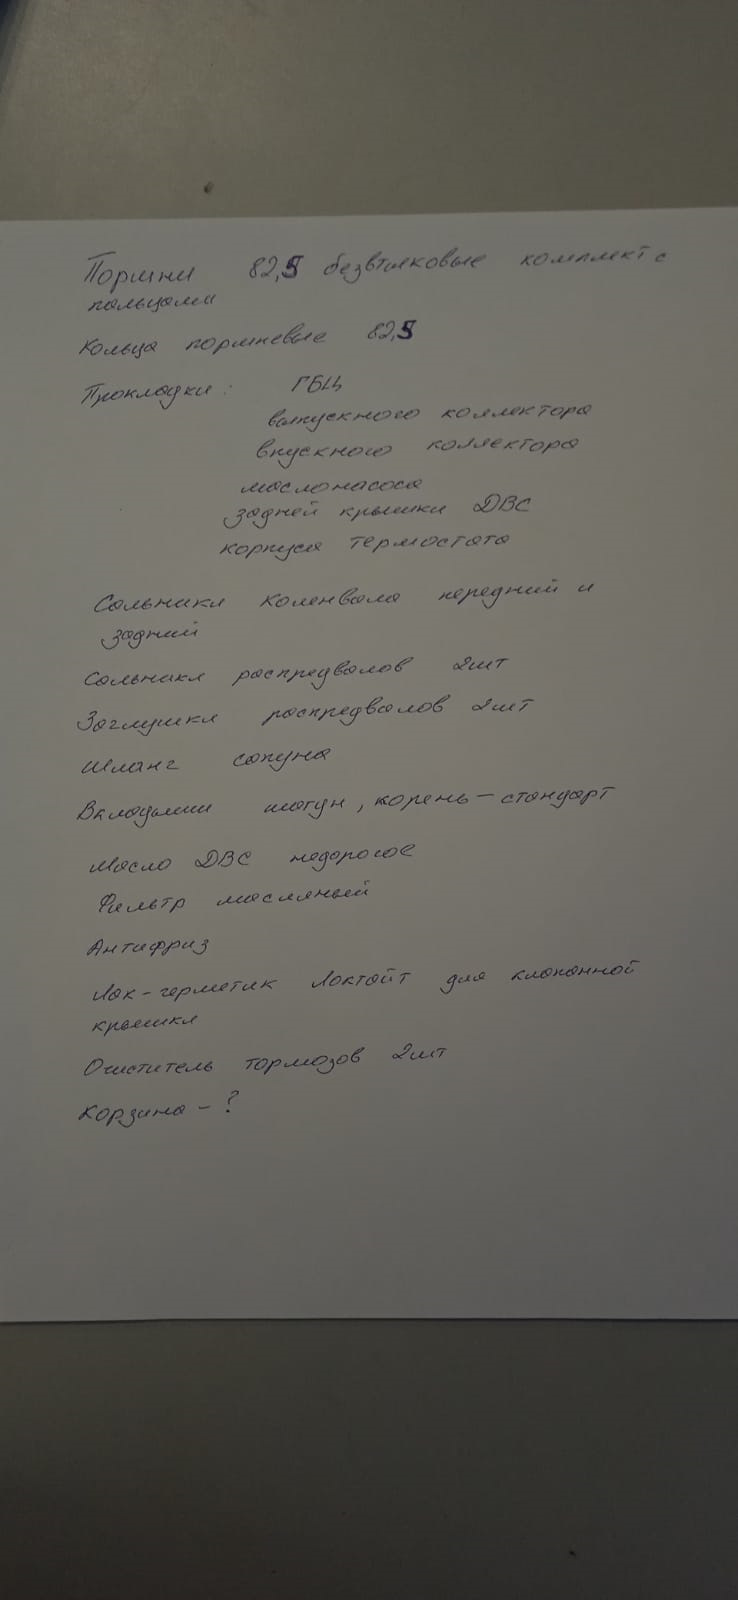 Поршни 82,5 безвтыковые комплект с
пальцами
Кольца поршневые 82,5
Прокладки: ГБЦ
выпускного коллектора
впускного коллектора
маслонасоса
задней крышки ДВС
корпуса термостата
Сальники коленвала передний и
задний
Сальники распредвалов 2шт
Заглушки распредвалов 2шт
Шланг сапуна
Вкладыши шатун, корень - стандарт
Масло ДВС недорогое
Фильтр масляный
Антифриз
Лак-герметик Локтайт для клапанной
крышки
Очиститель тормозов 2шт
Корзина - ?